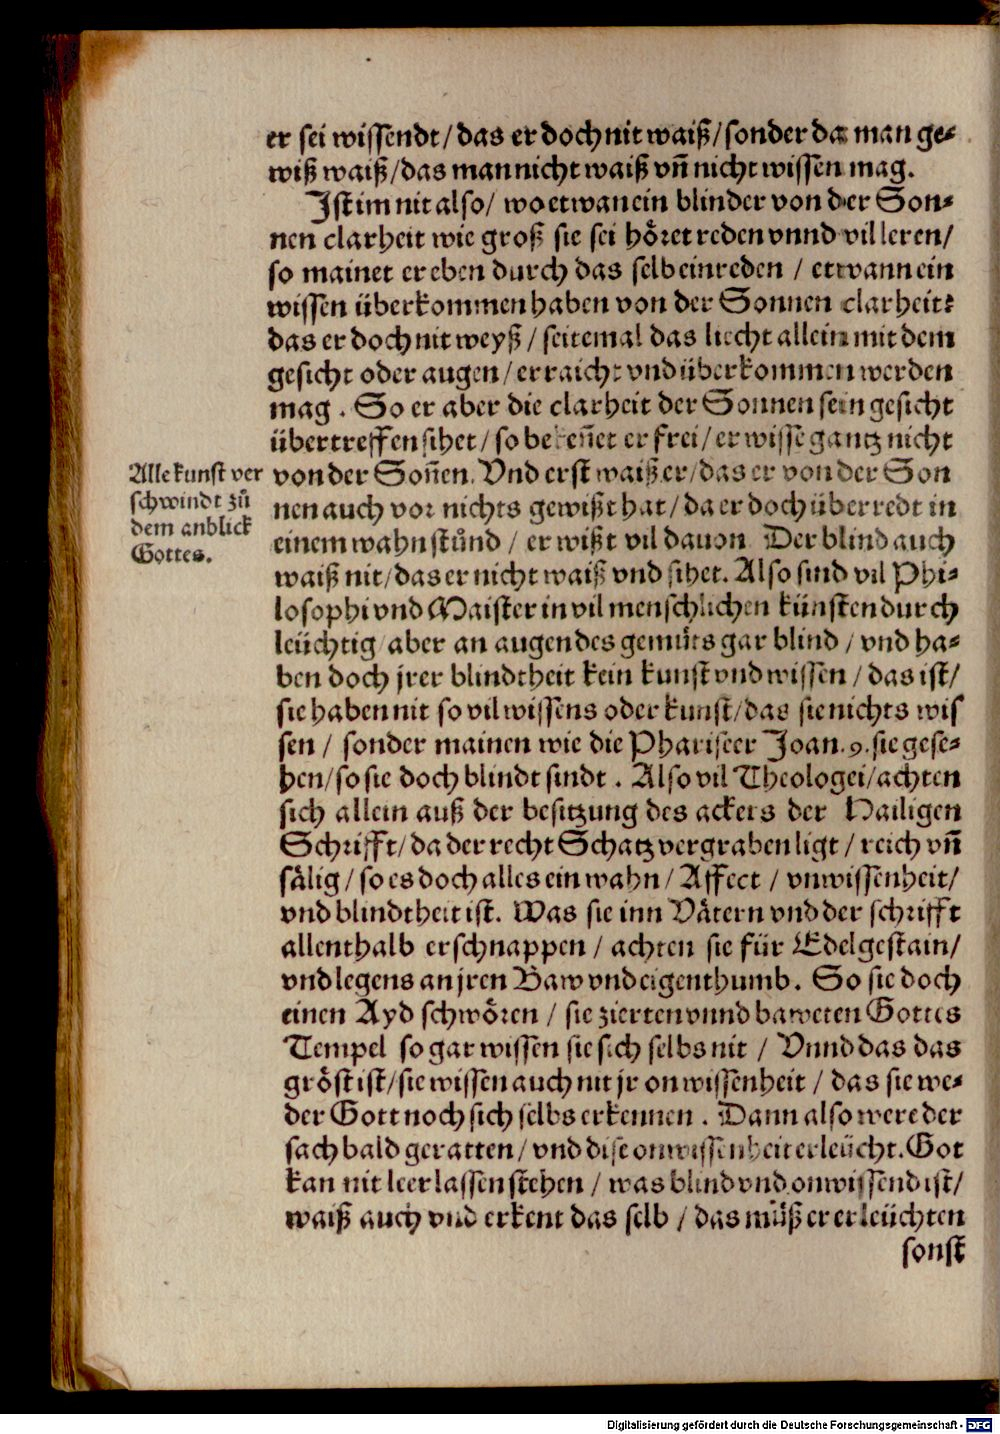 er sei wissendt/das er doch nit waiß/sonder da man ge-
wiß waiß/das man nicht waiß vñ nicht wissen mag.
Ist im nit also/ wo etwan ein blinder von der Son-
nen clarheit wie groß sie sei höret reden vnnd vil leren/
so mainet er eben durch das selb einreden / etwann ein
wissen überkommen haben von der Sonnen clarheit:
das er doch nit weyß / seitemal das liecht allein mit dem
gesicht oder augen/ erraicht vnd überkommen werden
mag . So er aber die clarheit der Sonnen sein gesicht
übertreffen sihet/ so bekeñet er frei/ er wisse gantz nicht
von der Soñen. Vnd erst waiß er/das er von der Son
nen auch vor nichts gewißt hat/ da er doch überredt in
einem wahn stůnd / er wißt vil dauon Der blind auch
waiß nit/das er nicht waiß vnd sihet. Also sind vil Phi-
losophi vnd Maister in vil menschlichen künsten durch
leüchtig/aber an augen des gemüts gar blind / vnd ha-
ben doch jrer blindtheit kein kunst vnd wissen / das ist/
sie haben nit so vil wissens oder kunst/das sie nichts wis
sen / sonder mainen wie die Phariseer Joan.9.sie gese-
hen/so sie doch blindt sindt . Also vil Theologei/achten
sich allein auß der besitzung des ackers der Hailigen
Schrifft/ da der recht Schatz vergraben ligt / reich vñ
sälig / so es doch alles ein wahn / Affect / vnwissenheit/
vnd blindtheit ist. Was sie inn Vätern vnd der schrifft
allenthalb erschnappen / achten sie für Edelgestain/
vnd legens an jren Baw vnd eigenthumb. So sie doch
einen Ayd schwören / sie zierten vnnd baweten Gottes
Tempel so gar wissen sie sich selbs nit / Vnnd das das
gröst ist/sie wissen auch nit jr onwissenheit / das sie we-
der Gott noch sich selbs erkennen . Dann also were der
sach bald geratten/ vnd dise onwissenheit erleücht. Got
kan nit leer lassen stehen / was blind vnd onwissend ist/
waiß auch vnd erkent das selb / das můß er erleüchten
sonst
Alle kunst ver
schwindt zů
dem anblick
Gottes.
Digitalisierung gefördert durch die Deutsche Forschungsgemeinschaft - DFG